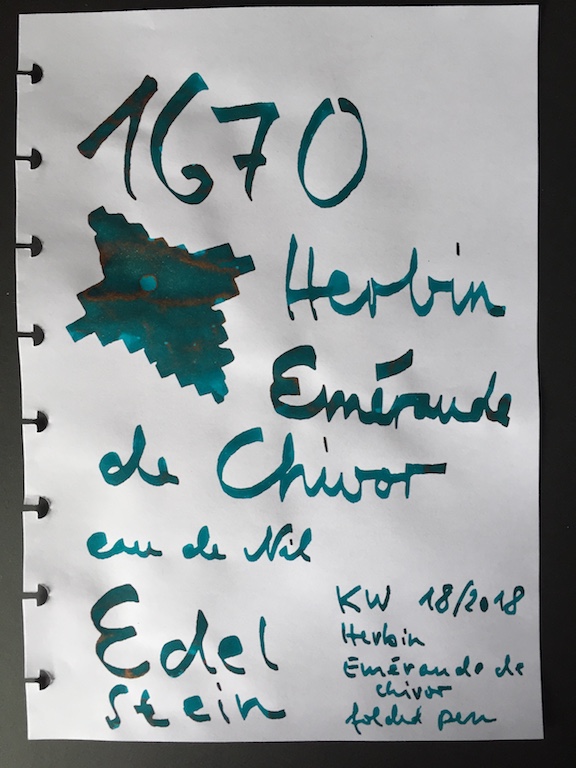 1670
Herbin
Eméraude
de Chivor
eau de Nil
Edel
stein
KW 18/2018
Herbin
Eméraude de
chivor
folded pen